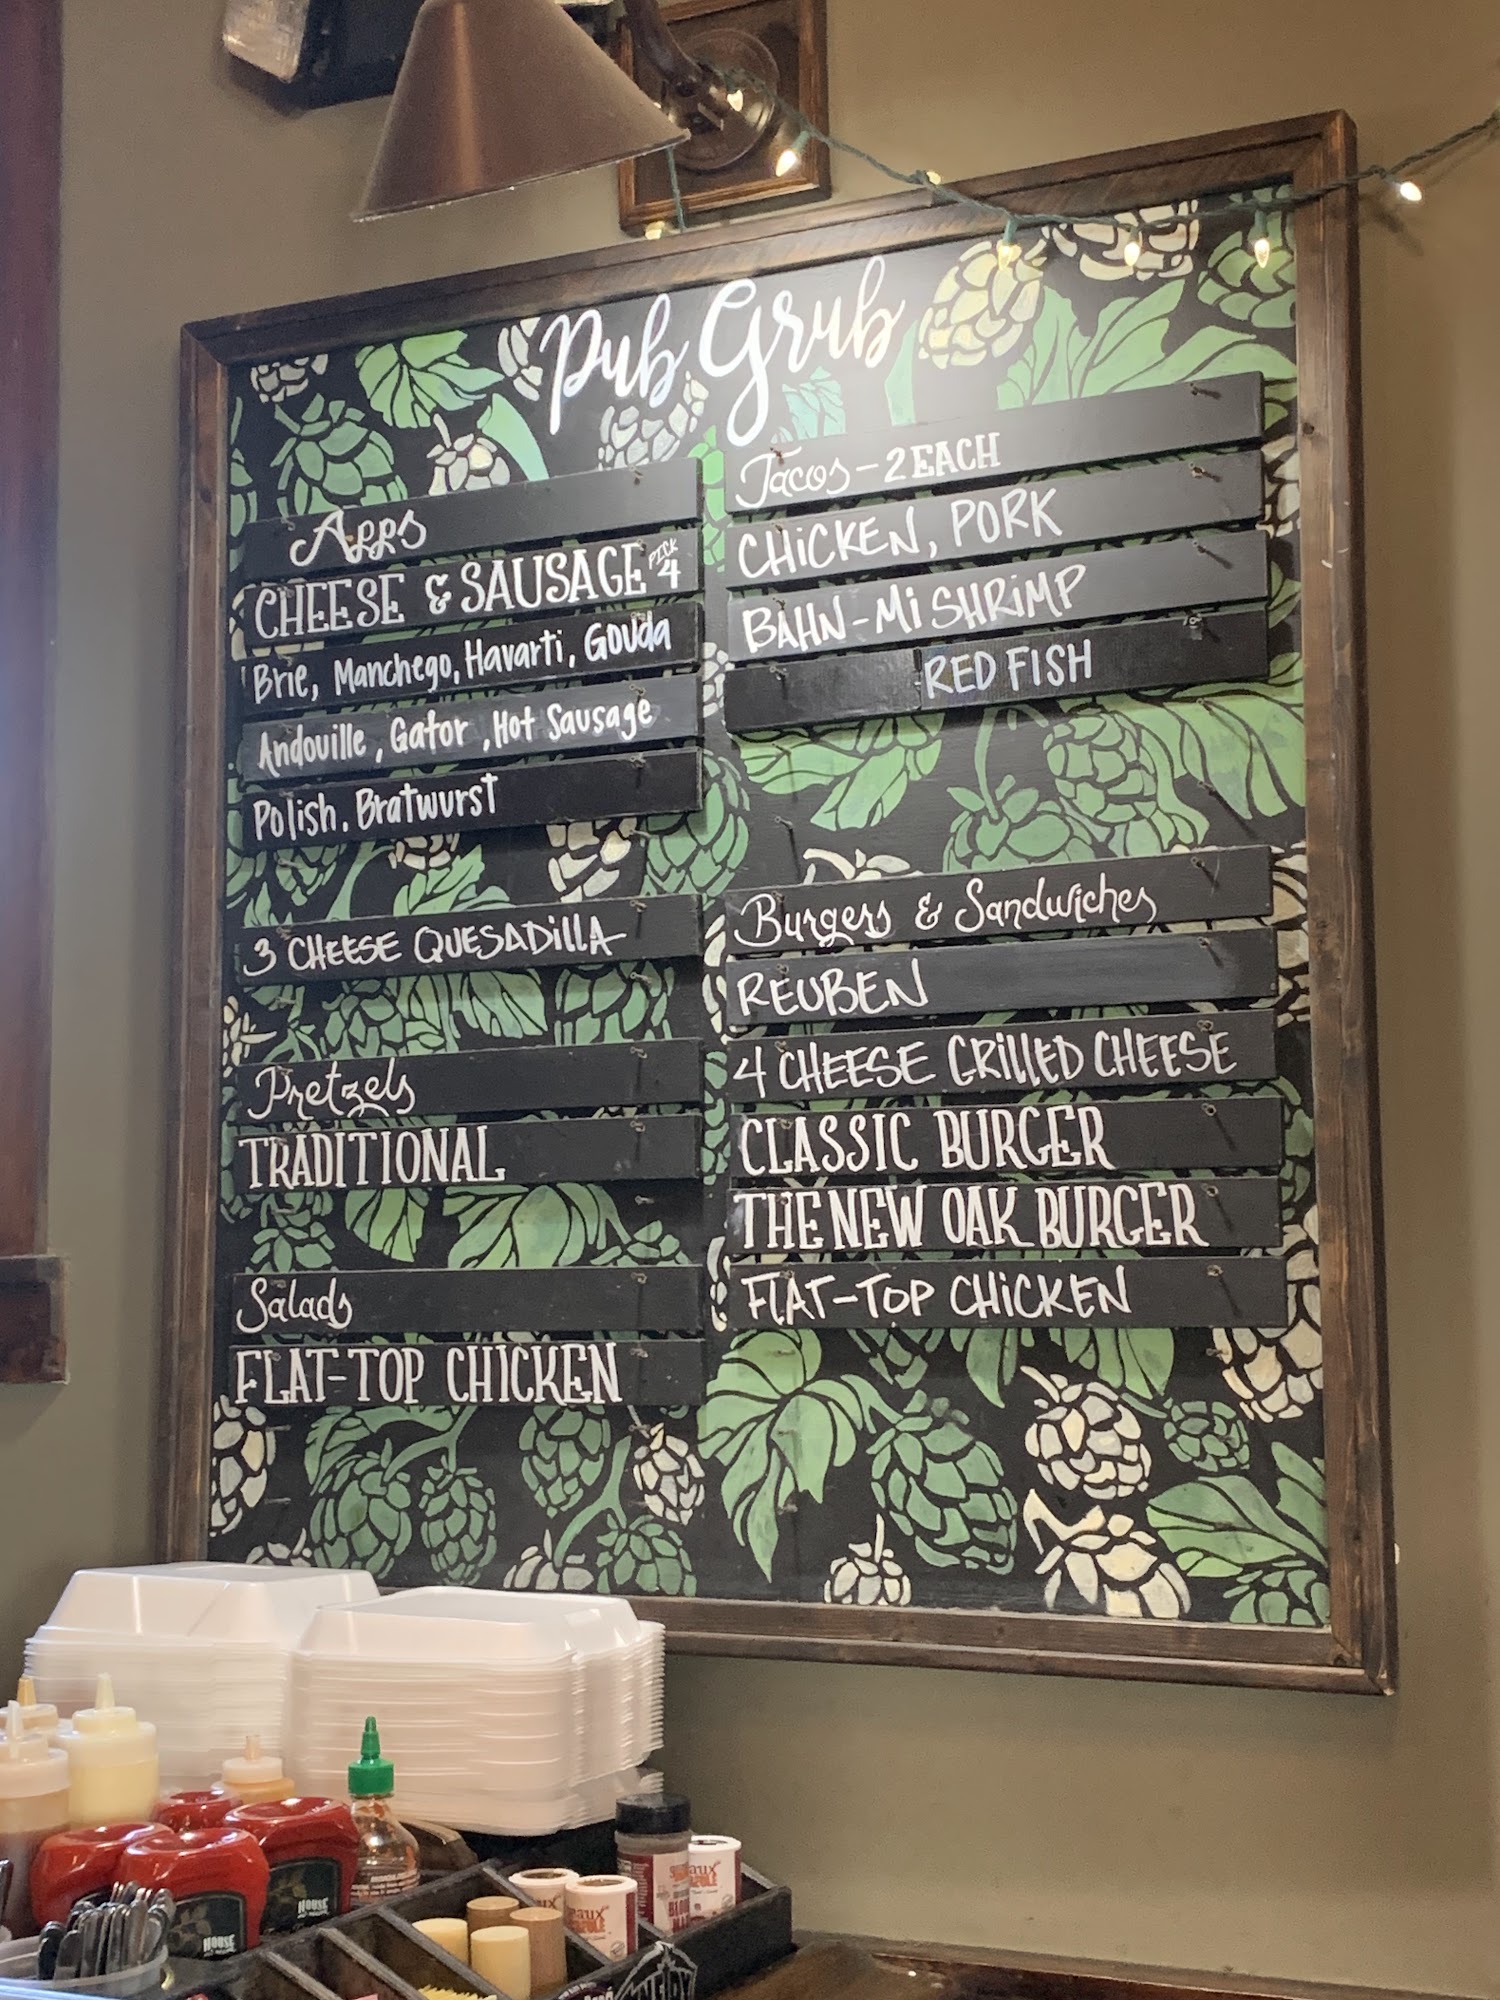 Pub Grub
Apps
CHEESE & SAUSAGE PICK 4
Brie, Manchego, Havarti, Gouda
Andouille, Gator, Hot Sausage
Polish, Bratwurst
3 CHEESE QUESADILLA
Pretzels
TRADITIONAL
Salads
FLAT-TOP CHICKEN
Tacos - 2 EACH
CHICKEN, PORK
BAHN-MI SHRIMP
RED FISH
Burgers & Sandwiches
REUBEN
4 CHEESE GRILLED CHEESE
CLASSIC BURGER
THE NEW OAK BURGER
FLAT-TOP CHICKEN
HOUSE
HOUSE